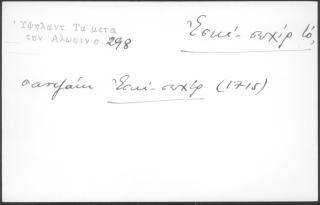 Ὑψηλαντ. Τα μετα
την Αλωσιν σ. 298
Ἐσκί-σεχίρ τό,
σαντζάκι Ἐσκί-σεχίρ (1715)